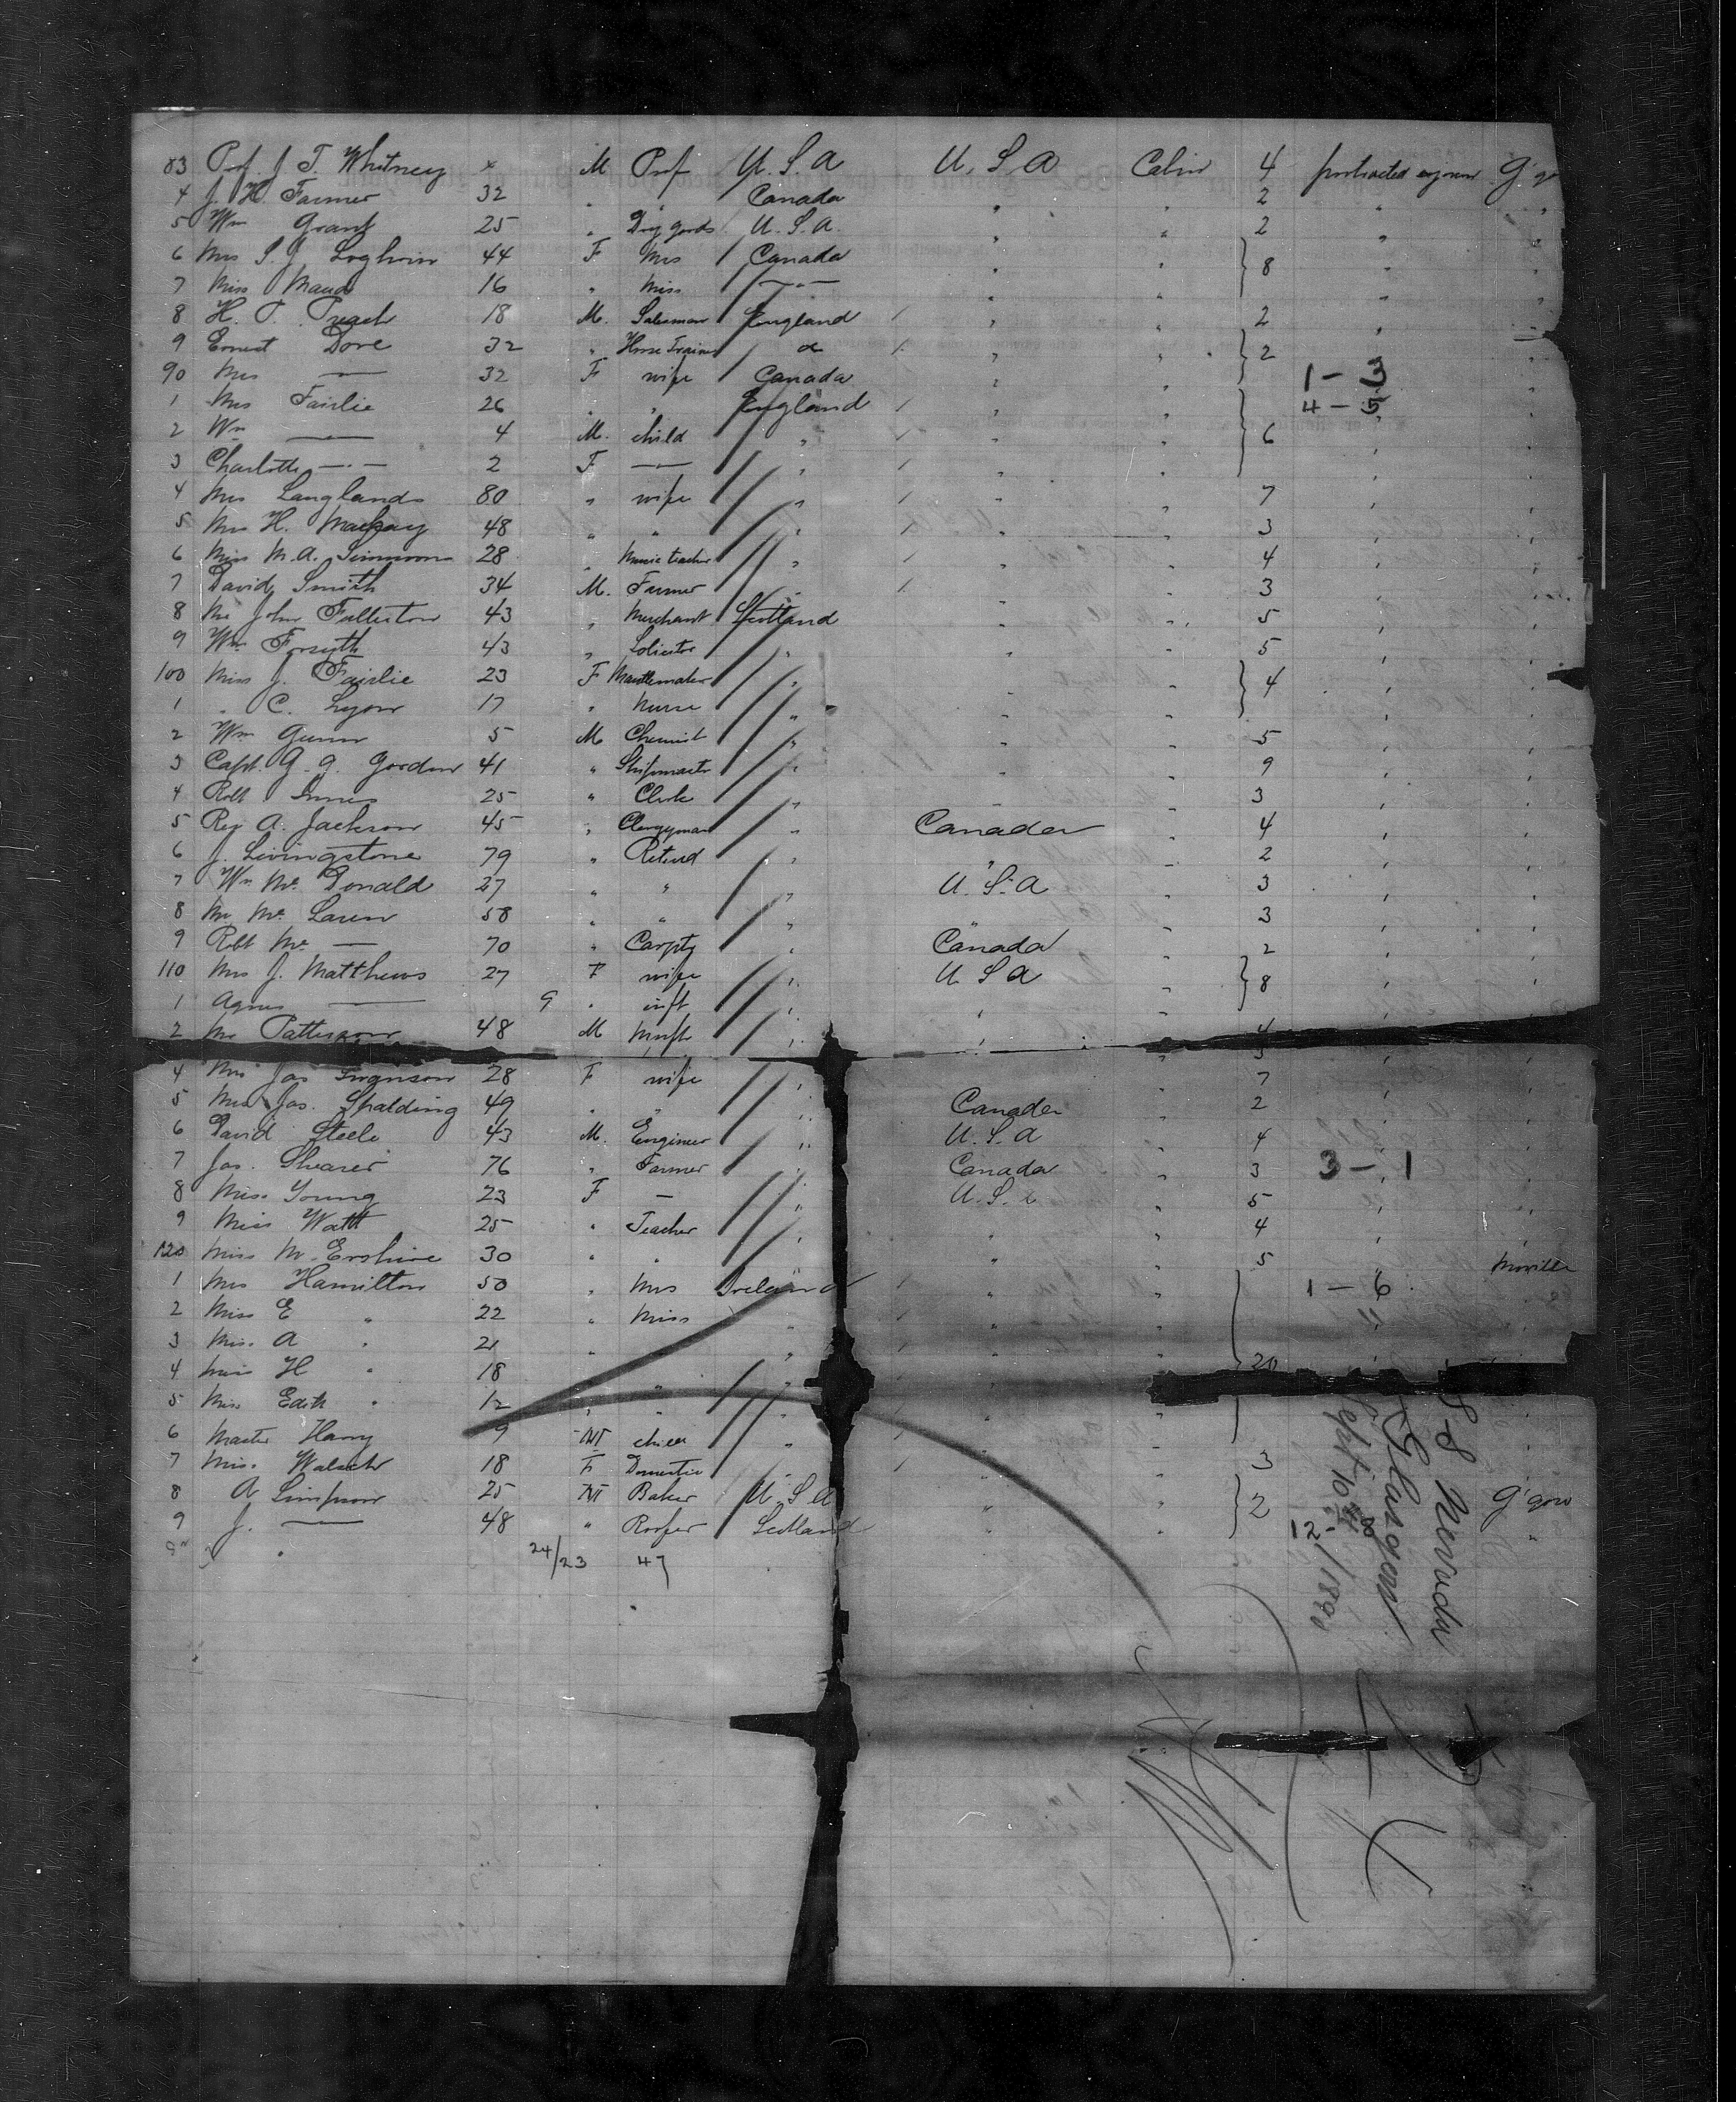 83 Prof J. T. Whitney x M Prof U. S. A U. S. A Cabin 4 protracted sojourn G'go
4 J. H. Farmer 32 " " Canada " " 2 " "
5 Wm Grant 25 " Dry goods U. S. A. " " 2 " "
6 Mrs S. J. 44 F Mrs Canada " " 8 " "
7 Miss Maud 16 " Miss — " — " " " "
8 H. T. 18 M. Salesman England " " 2 " "
9 Ernest Dove 32 " Horse Trainer do " " 2 "
90 Mrs — 32 F wife Canada " " 1 - 3 "
1 Mrs Fairlie 26 " " England " " 4 - 5 "
2 Wm — 4 M. child " " " 6 " "
3 Charlotte — " — 2 F — " — " " " " "
4 Mrs Langlands 80 " wife " " " 7 " "
5 Mrs H. Mackay 48 " " " " " 3 " "
6 Miss M. A. 28 " Music teacher " " " 4 " "
7 David Smith 34 M. Farmer " " " 3 " "
8 Mr John Fullerton 43 " Merchant Scotland " " 5 " "
9 Wm Forsyth 43 " Solicitor " " " 5 " "
100 Miss J. Fairlie 23 F Mantlemaker " " " 4 " "
1 " C. Lyon 17 " Nurse " " " " "
2 Wm Gunn 5 M Chemist " " " 5 " "
3 Capt. G. G. Gordon 41 " Shipmaster " " " 9 " "
4 Robt Innes 25 " Clerk " " " 3 " "
5 Rev A. Jackson 45 " Clergyman " Canada " 4 " "
6 J. Livingstone 79 " Retired " " " 2 " "
7 Wm Mc Donald 27 " " " U. S. A " 3 " "
8 Mr Mc Laren 58 " " " " " 3 " "
9 Robt Mc — 70 " " Canada " 2 " "
110 Mrs J. Matthews 27 F wife " U S A " 8 " "
1 Agnes — 9 " inft " " " " "
2 Mr Patterson 48 M " " 4
3
4 Mrs Jas Swanson 28 F wife " " 7 " "
5 Mrs Jas. Spalding 49 " " " Canada " 2 " "
6 David Steele 43 M. Engineer " U. S. A " 4 " "
7 Jas. Shearer 76 " Farmer " Canada " 3 3 - 1 "
8 Miss Young 23 F — " U. S. A " 5 " "
9 Miss Watt 25 " Teacher " " " 4 " "
120 Miss M. Erskine 30 " " " " " 5 "
1 Mrs Hamilton 50 " Mrs Ireland " " 1 - 6 Moville
2 Miss E " 22 " Miss " " " " "
3 Miss A " 21 " " " " " " "
4 Miss H " 18 " " 20
5 Miss Edith " 12 " " " " "
6 Master Harry 9 M child " " " "
7 Miss 18 F Domestic " " " 3 "
8 A Simpson 25 M Baker U. S. A " " 2 G'gow
9 J. — 48 " Roofer Scotland " " 12 - "
24/23 47
S S Nevada
Glasgow
Sept 10th /1890